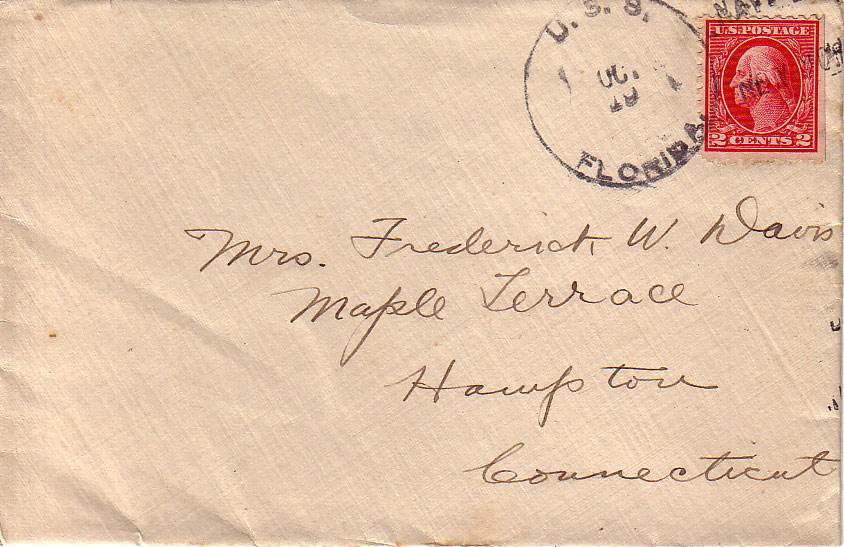 U.S.S.
OCT
19
FLORIDA
NEW YORK
U.S. POSTAGE
2 CENTS 2
Mrs. Frederick W. Davis
Maple Terrace
Hampton
Connecticut